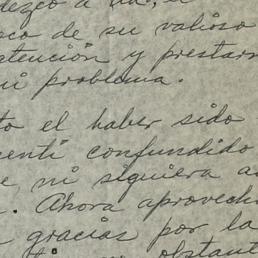 dezco a Ud., el
oco de su valioso
atención y prestarm
mi problema.
to el haber sido
centí confundido
e ni siquiera a
. Ahora aprovech
gracias por la
obstant